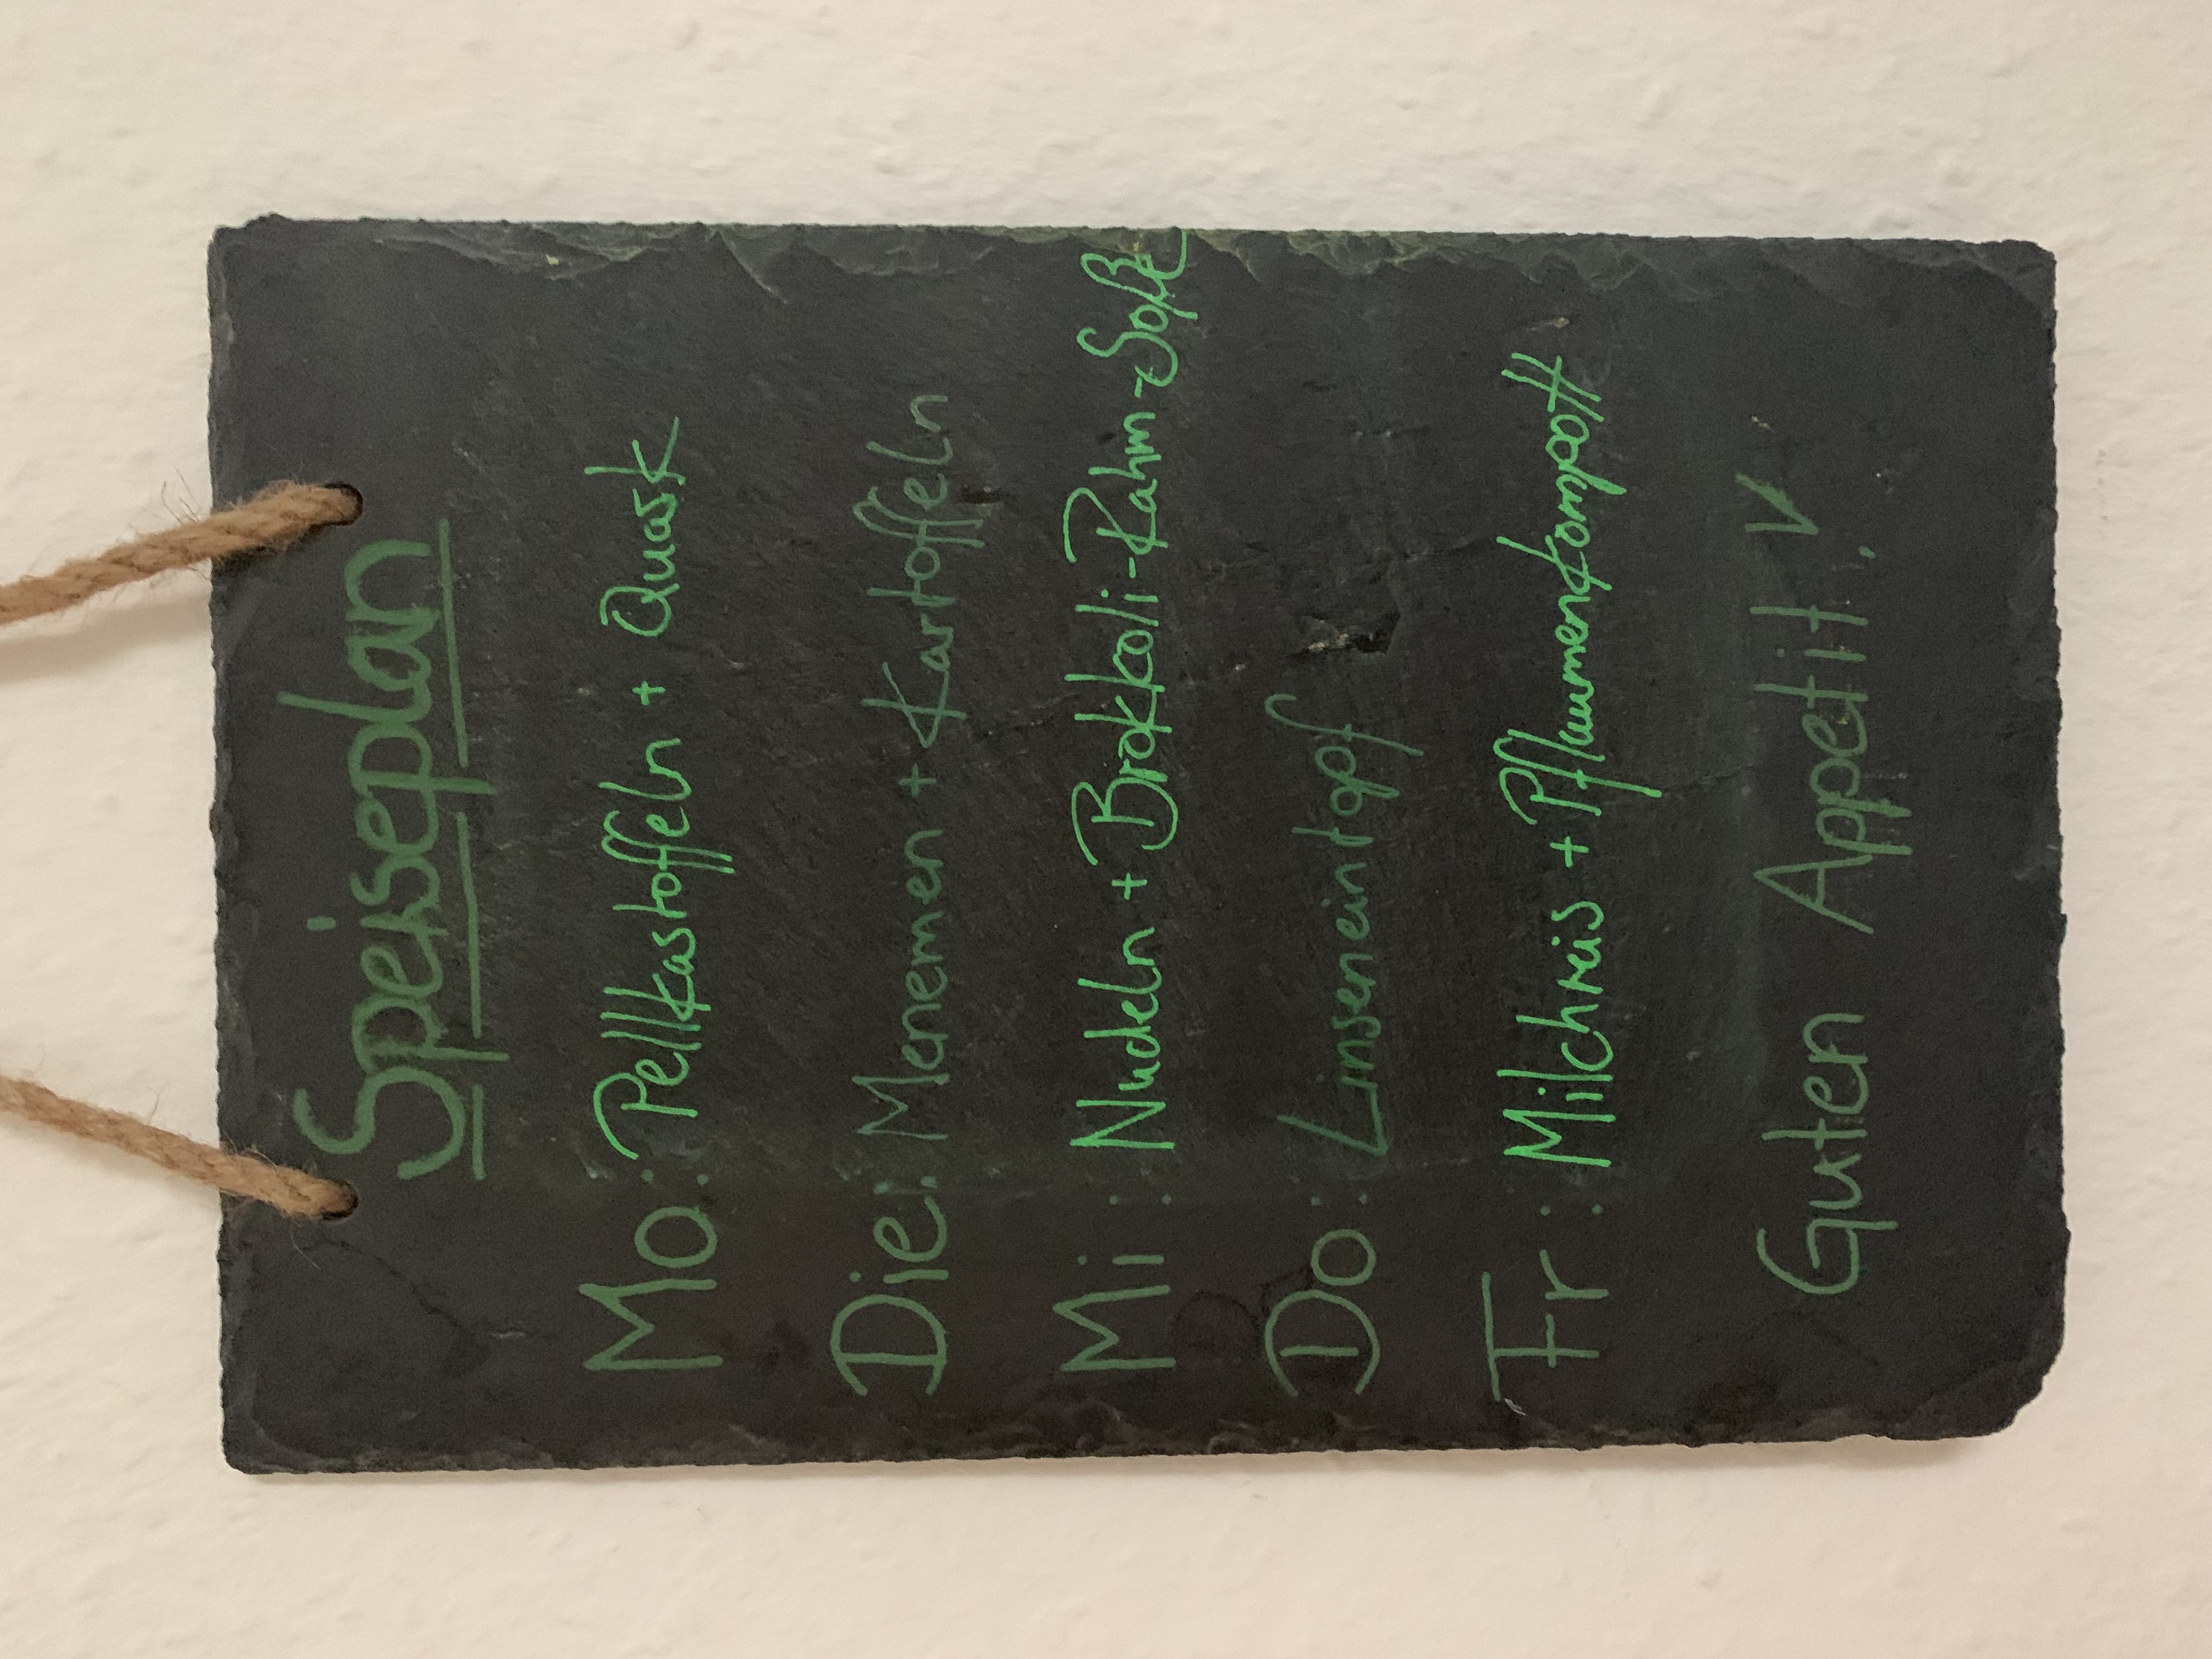 Speiseplan
Mo: Pellkartoffeln + Quark
Die: Menemen + Kartoffeln
Mi: Nudeln + Brokkoli-Rahm-Soße
Do: Linseneintopf
Fr: Milchreis + Pflaumenkompott
Guten Appetit!